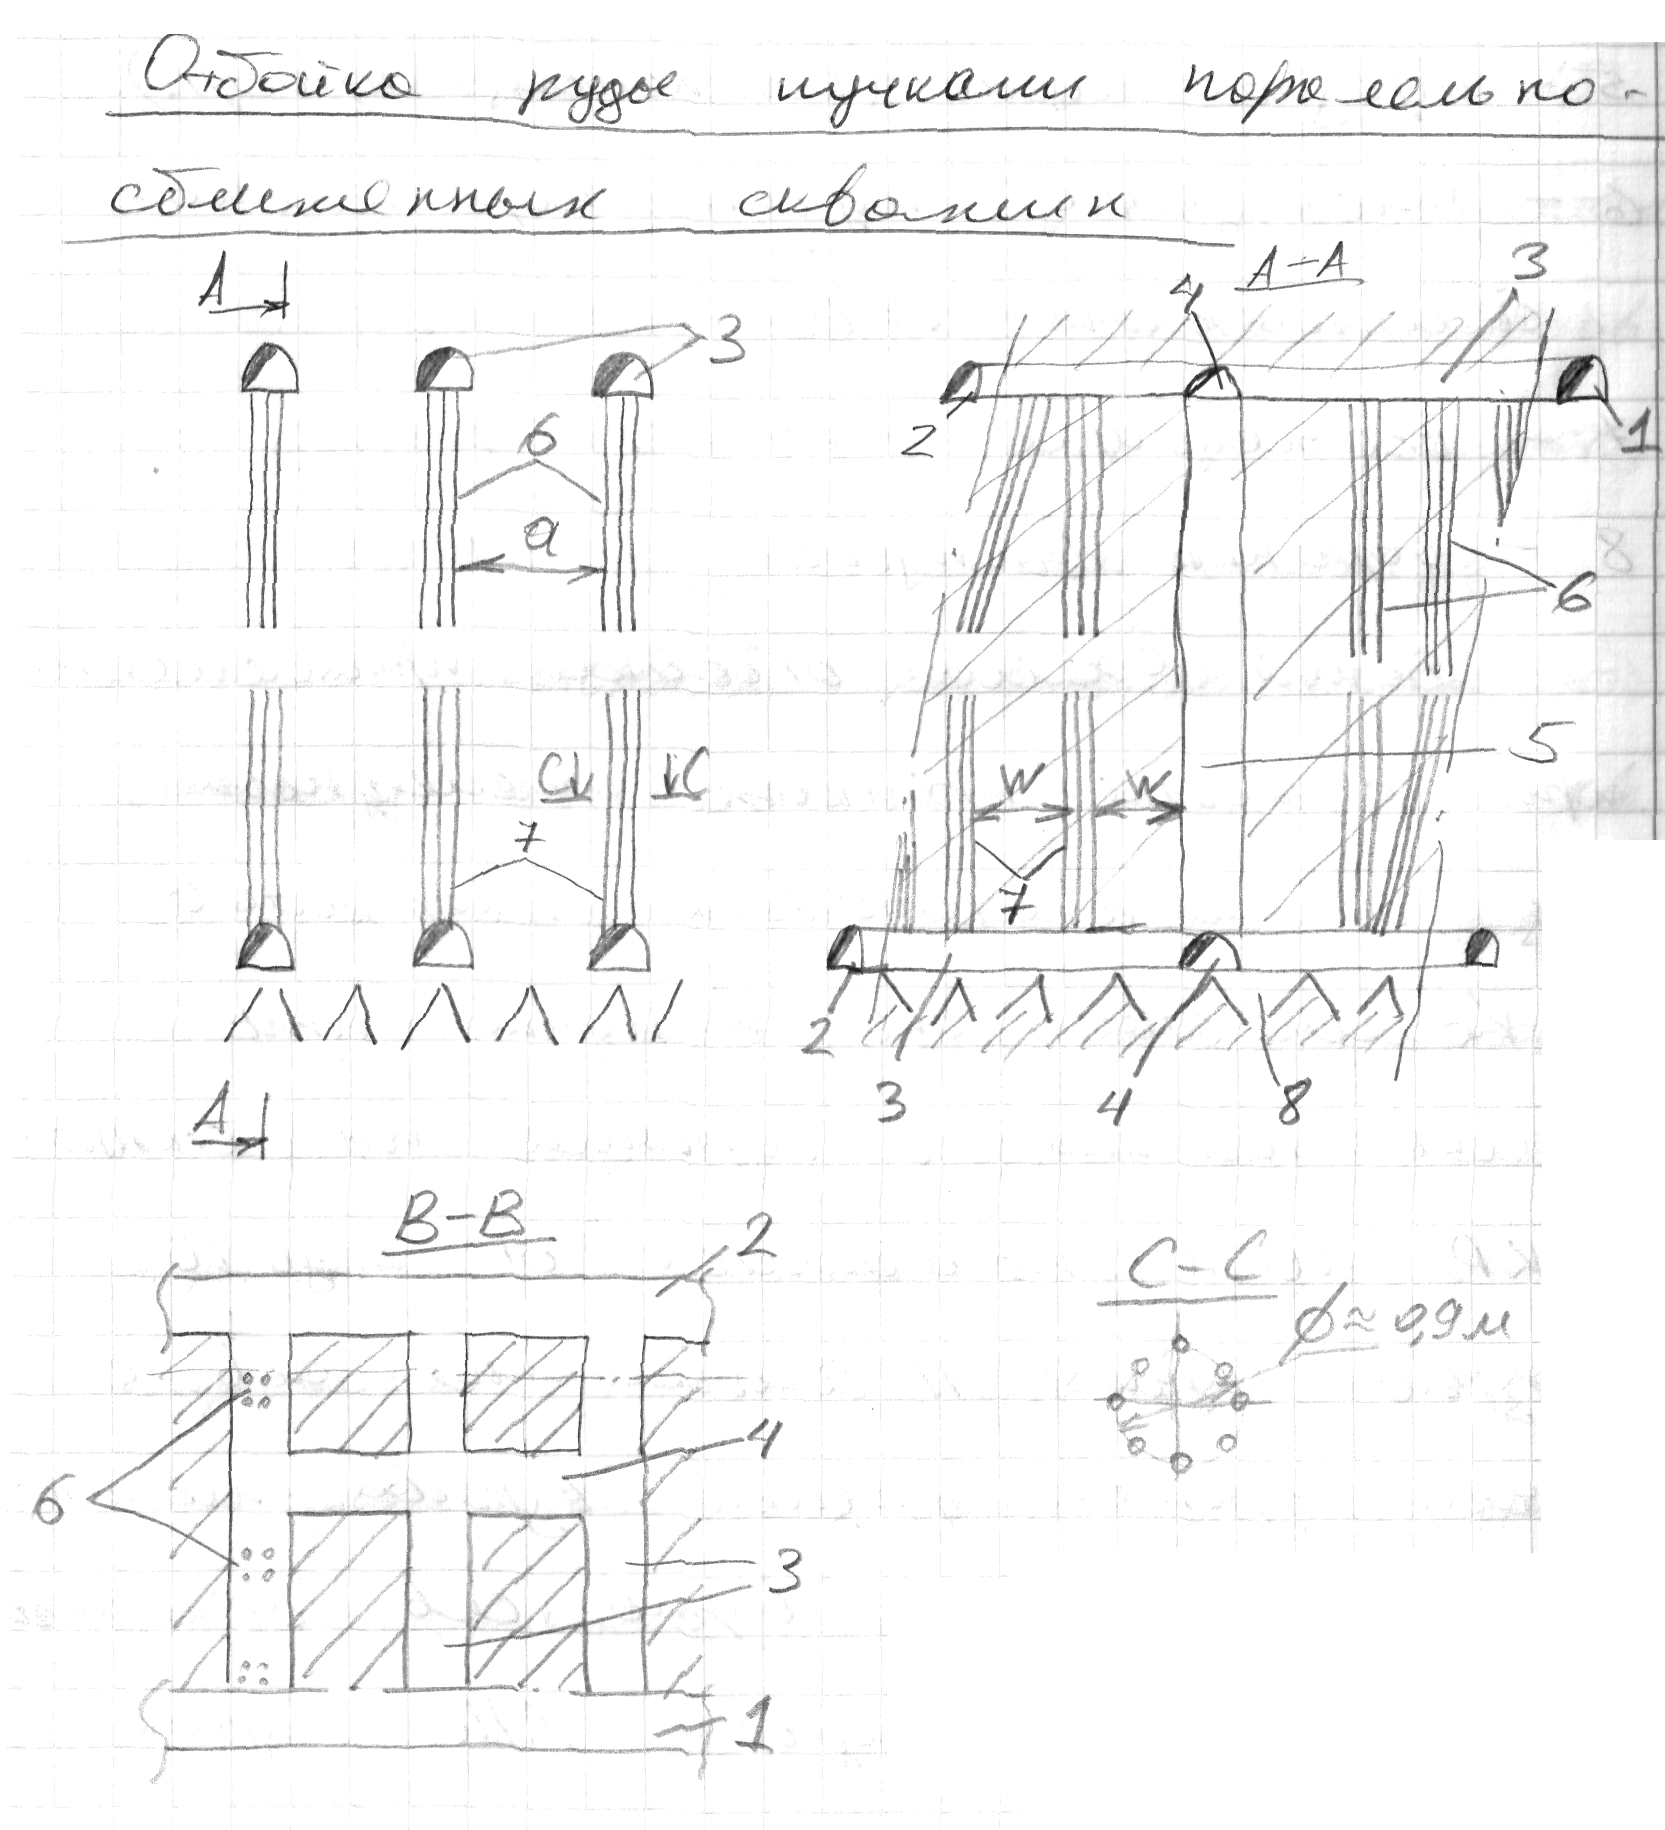 Отбойка руды пучками паралельно-
сближенных скважин
А
А-А
3
4
3
2
1
6
а
6
5
С С
W W
7
7
2
3
4
8
А
В-В
2
С-С
ϕ≈0,9м
4
6
3
1